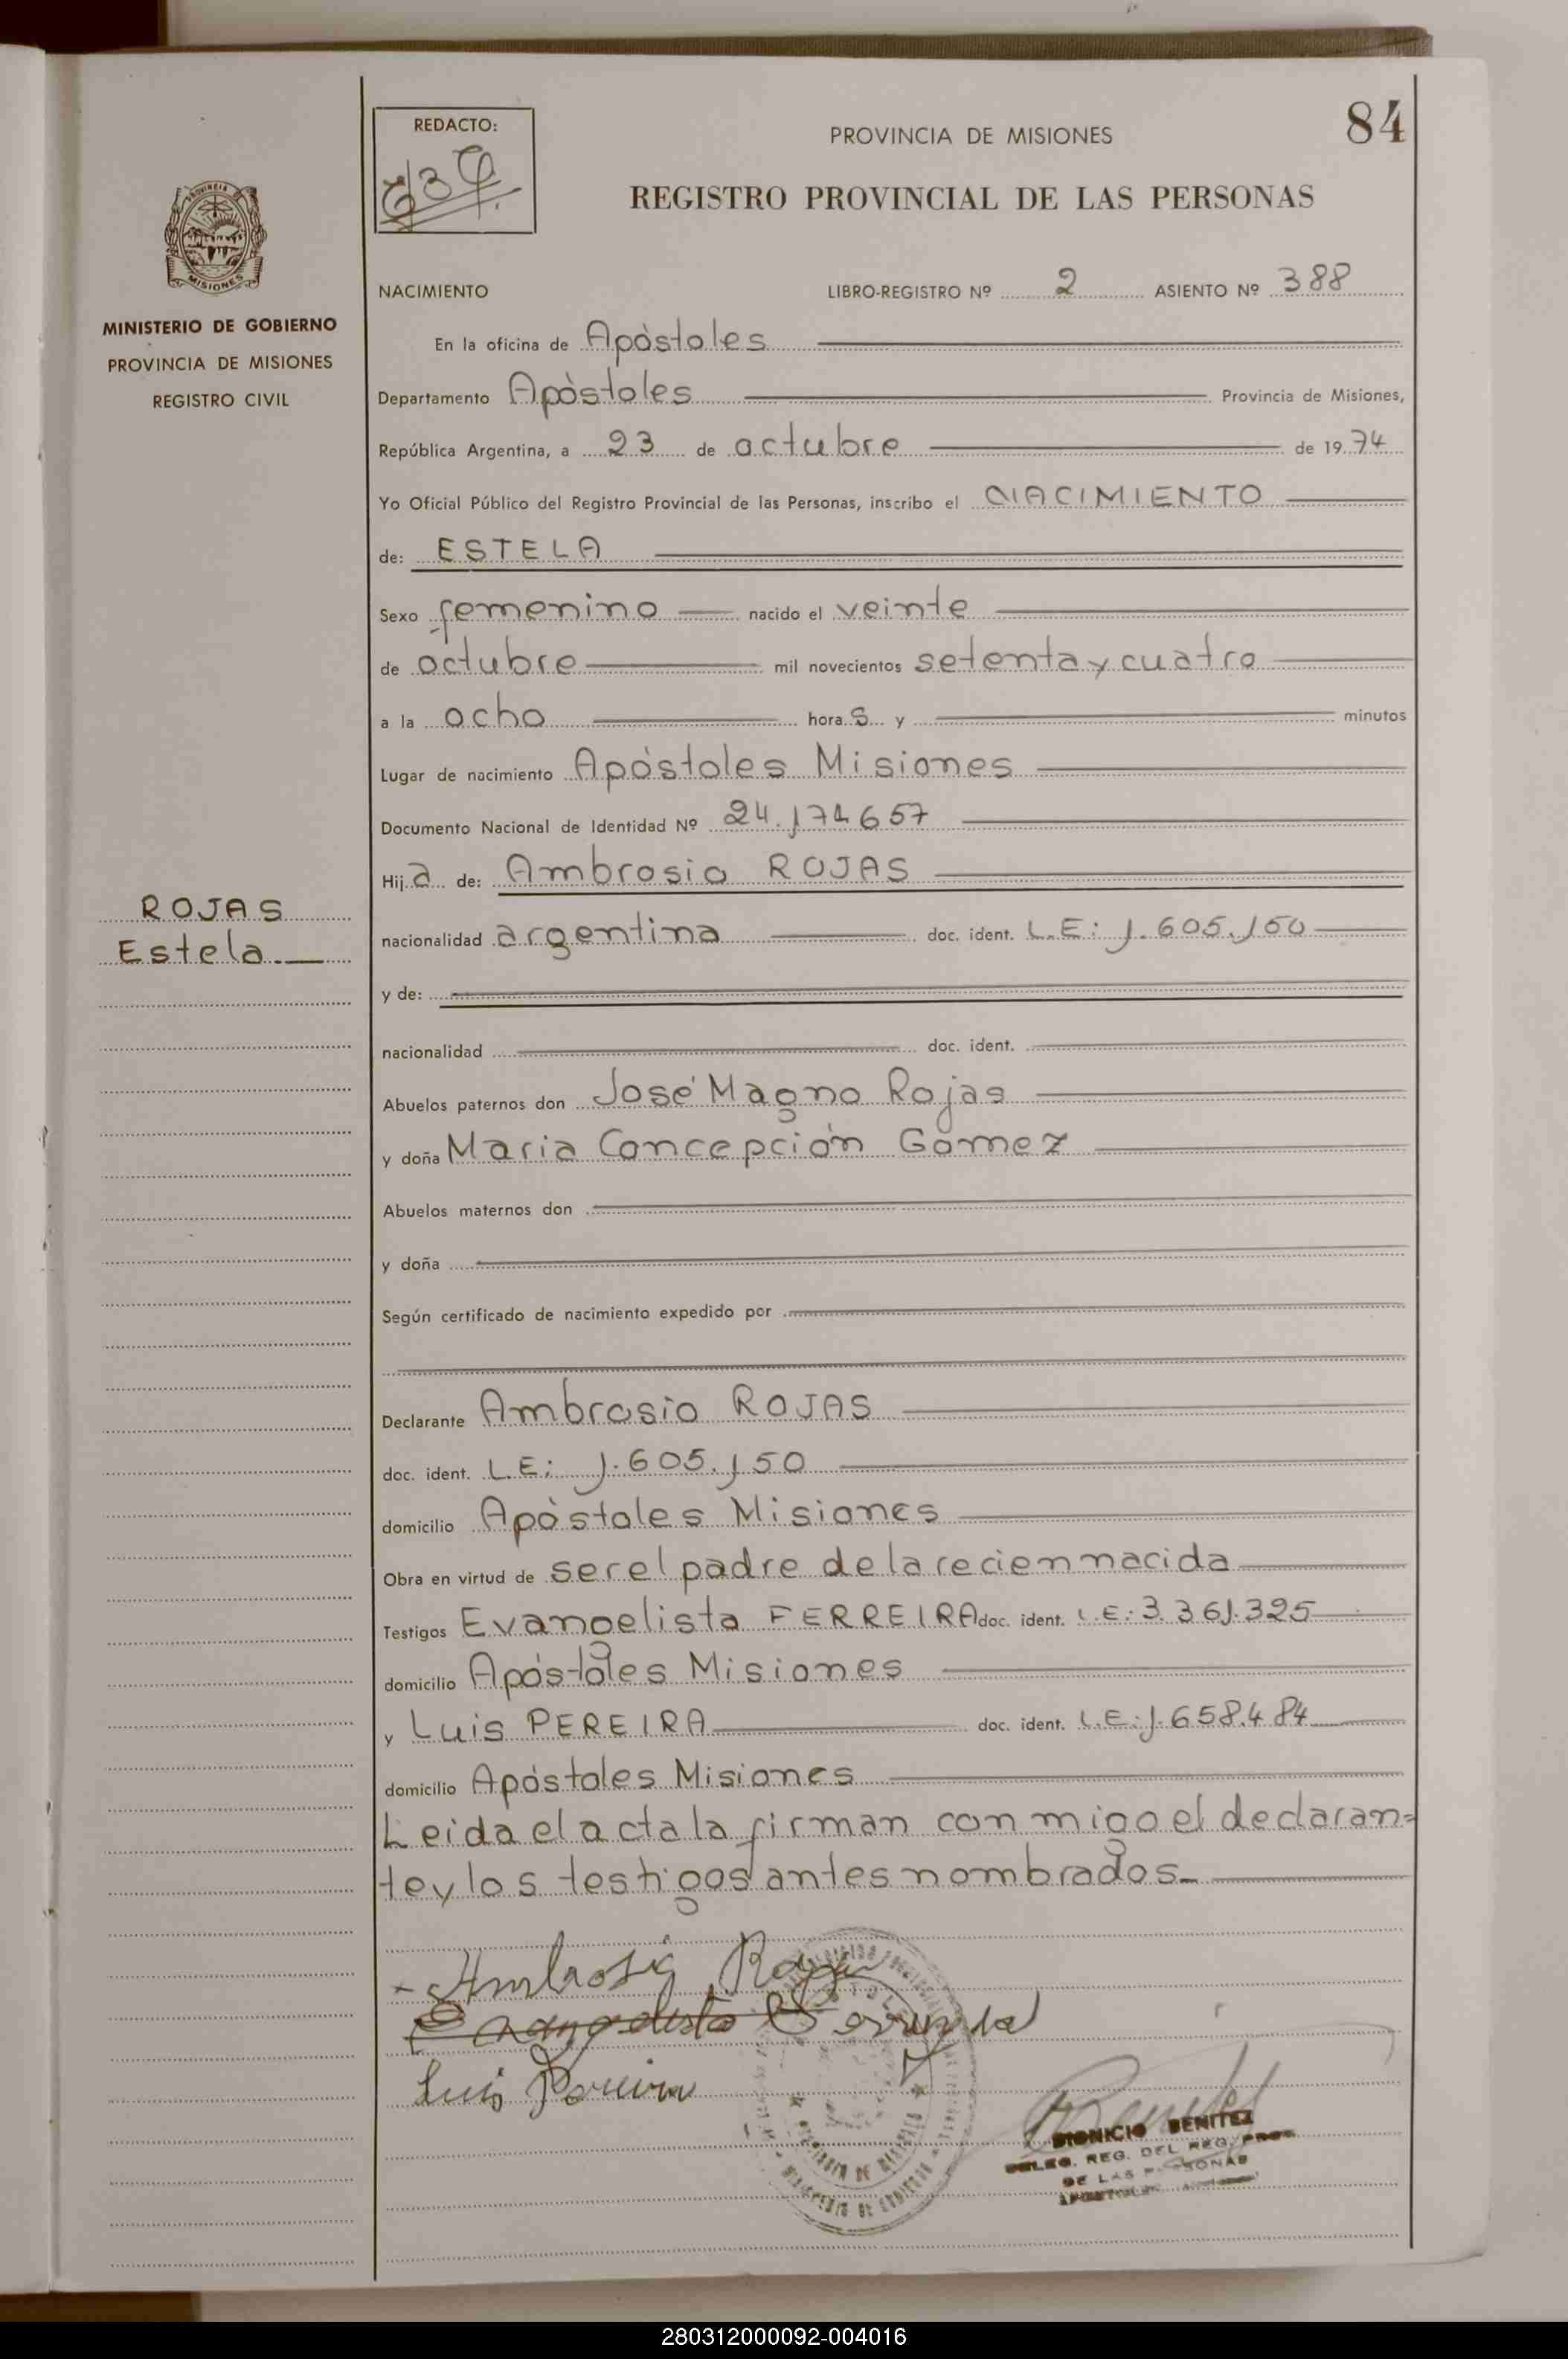 84
REDACTO:
PROVINCIA DE MISIONES
REGISTRO PROVINCIAL DE LAS PERSONAS
PROVINCIA
MISIONES
MINISTERIO DE GOBIERNO
PROVINCIA DE MISIONES
REGISTRO CIVIL
NACIMIENTO LIBRO-REGISTRO Nº 2 ASIENTO Nº 388
En la oficina de Apòstoles
Departamento Apòstoles Provincia de Misiones,
República Argentina, a 23 de octubre de 1974
Yo Oficial Público del Registro Provincial de las Personas, inscribo el NACIMIENTO
de: ESTELA
Sexo femenino nacido el veinte
de octubre mil novecientos setenta y cuatro
a la ocho hora s y minutos
Lugar de nacimiento Apóstoles Misiones
Documento Nacional de Identidad Nº 24.174657
Hij a de: Ambrosio ROJAS
ROJAS
Estela.
nacionalidad argentina doc. ident. L.E: 1.605.150
y de:
nacionalidad doc. ident.
Abuelos paternos don José Magno Rojas
y doña Maria Concepción Gómez
Abuelos maternos don
y doña
Según certificado de nacimiento expedido por
Declarante Ambrosio ROJAS
doc. ident. L.E: 1.605.150
domicilio Apòstoles Misiones
Obra en virtud de ser el padre de la recien nacida
Testigos Evangelista FERREIRA doc. ident. L.E: 3.361.325
domicilio Apóstoles Misiones
y Luis PEREIRA doc. ident. L.E: 1.658.484
domicilio Apóstoles Misiones
Leida el acta la firman con migo el declaran=
te y los testigos antes nombrados.
Ambrosio Rojas
Luis Pereira
DIONICIO BENITEZ
DELEG. REG. DEL REG. PROV.
DE LAS PERSONAS
280312000092-004016